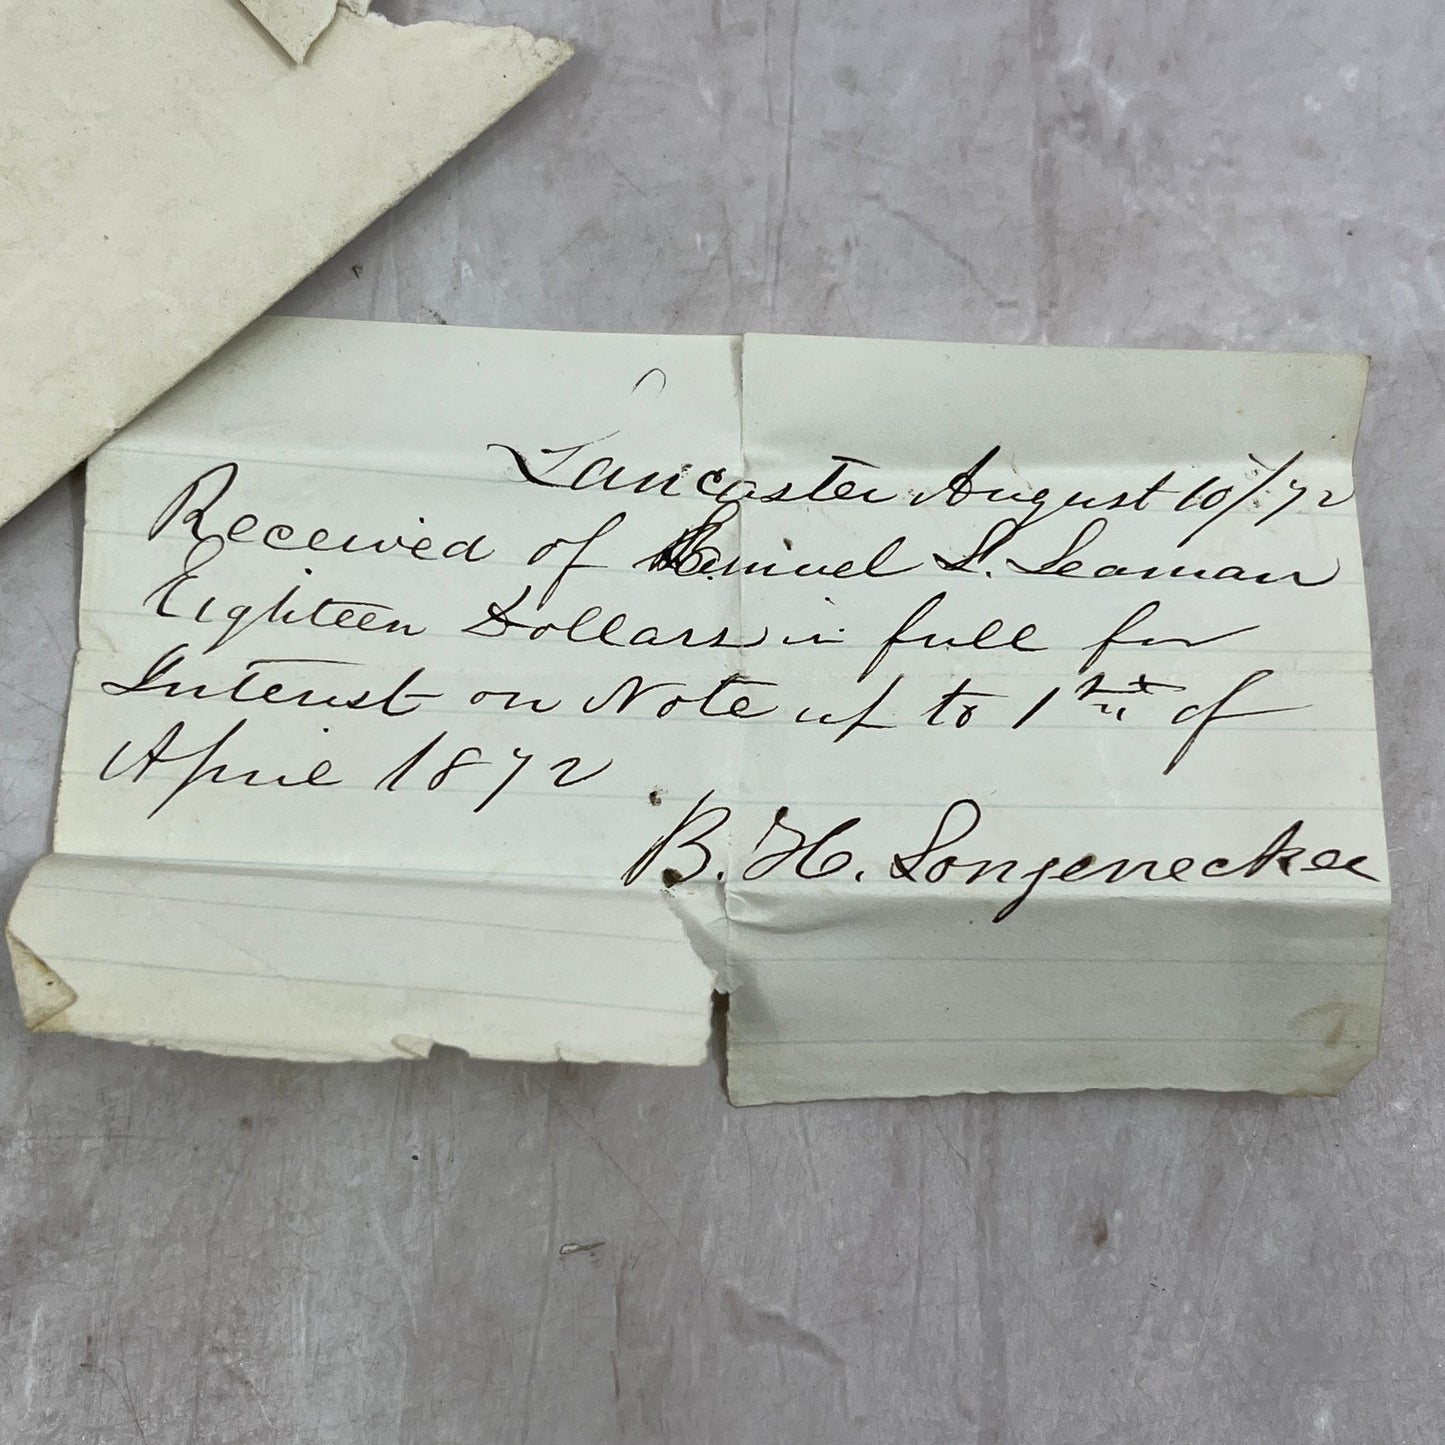 Lancaster August 10/72
Received of L. Seaman
Eighteen Dollars in full for
Interest on Note up to 1st of
April 1872
B. H. Longenecker